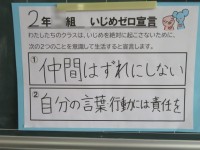 2年 組 いじめゼロ宣言
わたしたちのクラスは、いじめを絶対に起こさないために、
次の2つのことを意識して生活すると宣言します。
① 仲間はずれにしない
② 自分の言葉行動には責任を